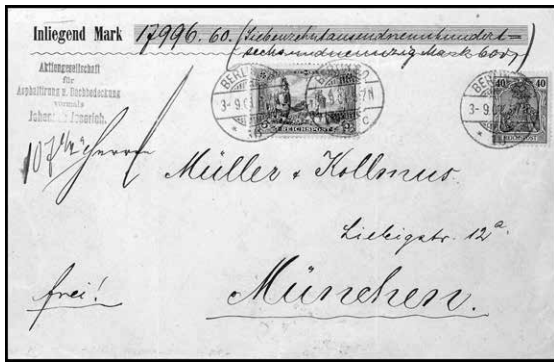 Inliegend Mark 17996.60. (Siebenzehntausendneunhundert=
sechsundneunzig Mark 60 d)
Aktiengesellschaft
für
Asphaltirung u. Dachbedeckung
vormals
Johannes Jeserich.
BERLIN
3-9.0
BERLIN S.O.
REICHSPOST
40 40
REICHSPOST
Herren
Müller & Kollmus.
Liebigstr. 12a.
frei!
München.